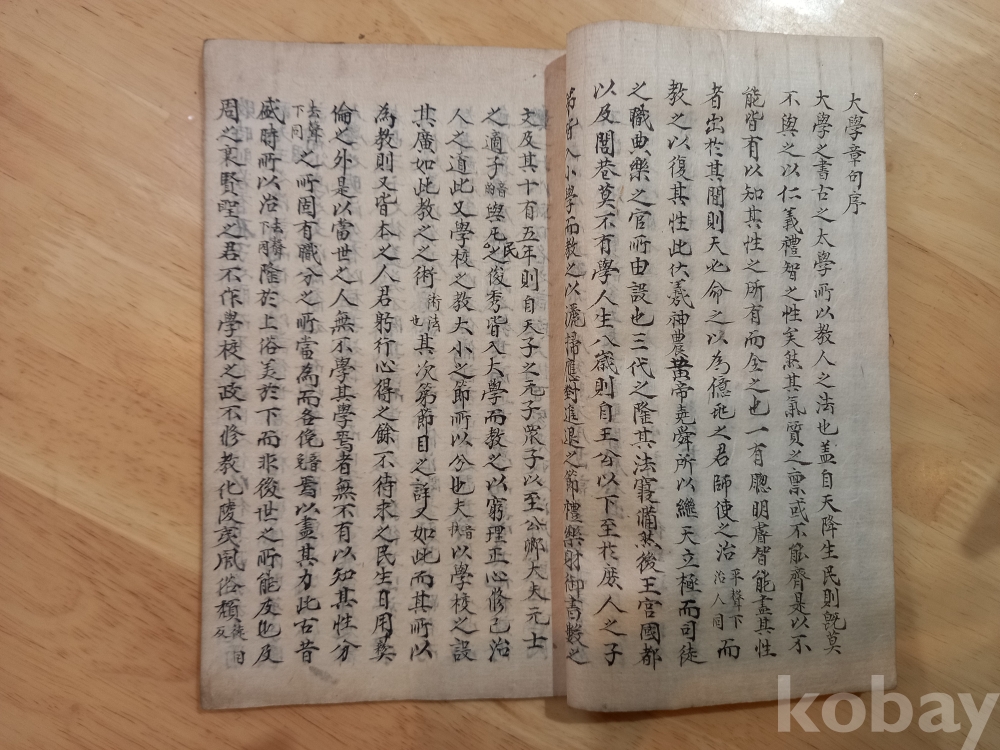 大學章句序
大學之書古之太學所以教人之法也盖自天降生民則既莫
不與之以仁義禮智之性矣然其氣質之禀或不能齊是以不
能皆有以知其性之所有而全之也一有聰明睿智能盡其性
者出於其間則天必命之以為億兆之君師使之治平聲下治人同而
教之以復其性此伏羲神農黃帝堯舜所以繼天立極而司徒
之職典樂之官所由設也三代之隆其法寖備然後王宮國都
以及閭巷莫不有學人生八歲則自王公以下至於庶人之子
弟皆入小學而教之以灑掃應對進退之節禮樂射御書數之
文及其十有五年則自天子之元子衆子以至公卿大夫元士
之適子音的與凡民之俊秀皆入大學而教之以窮理正心修己治
人之道此又學校之教大小之節所以分也夫音扶以學校之設
其廣如此教之之術術法也其次第節目之詳又如此而其所以
為教則又皆本之人君躬行心得之餘不待求之民生日用彝
倫之外是以當世之人無不學其學焉者無不有以知其性分
去聲下同之所固有職分之所當為而各俛焉以盡其力此古昔
盛時所以治去聲下同隆於上俗美於下而非後世之所能及也及
周之衰賢聖之君不作學校之政不修教化陵夷風俗頹徒回反
kobay